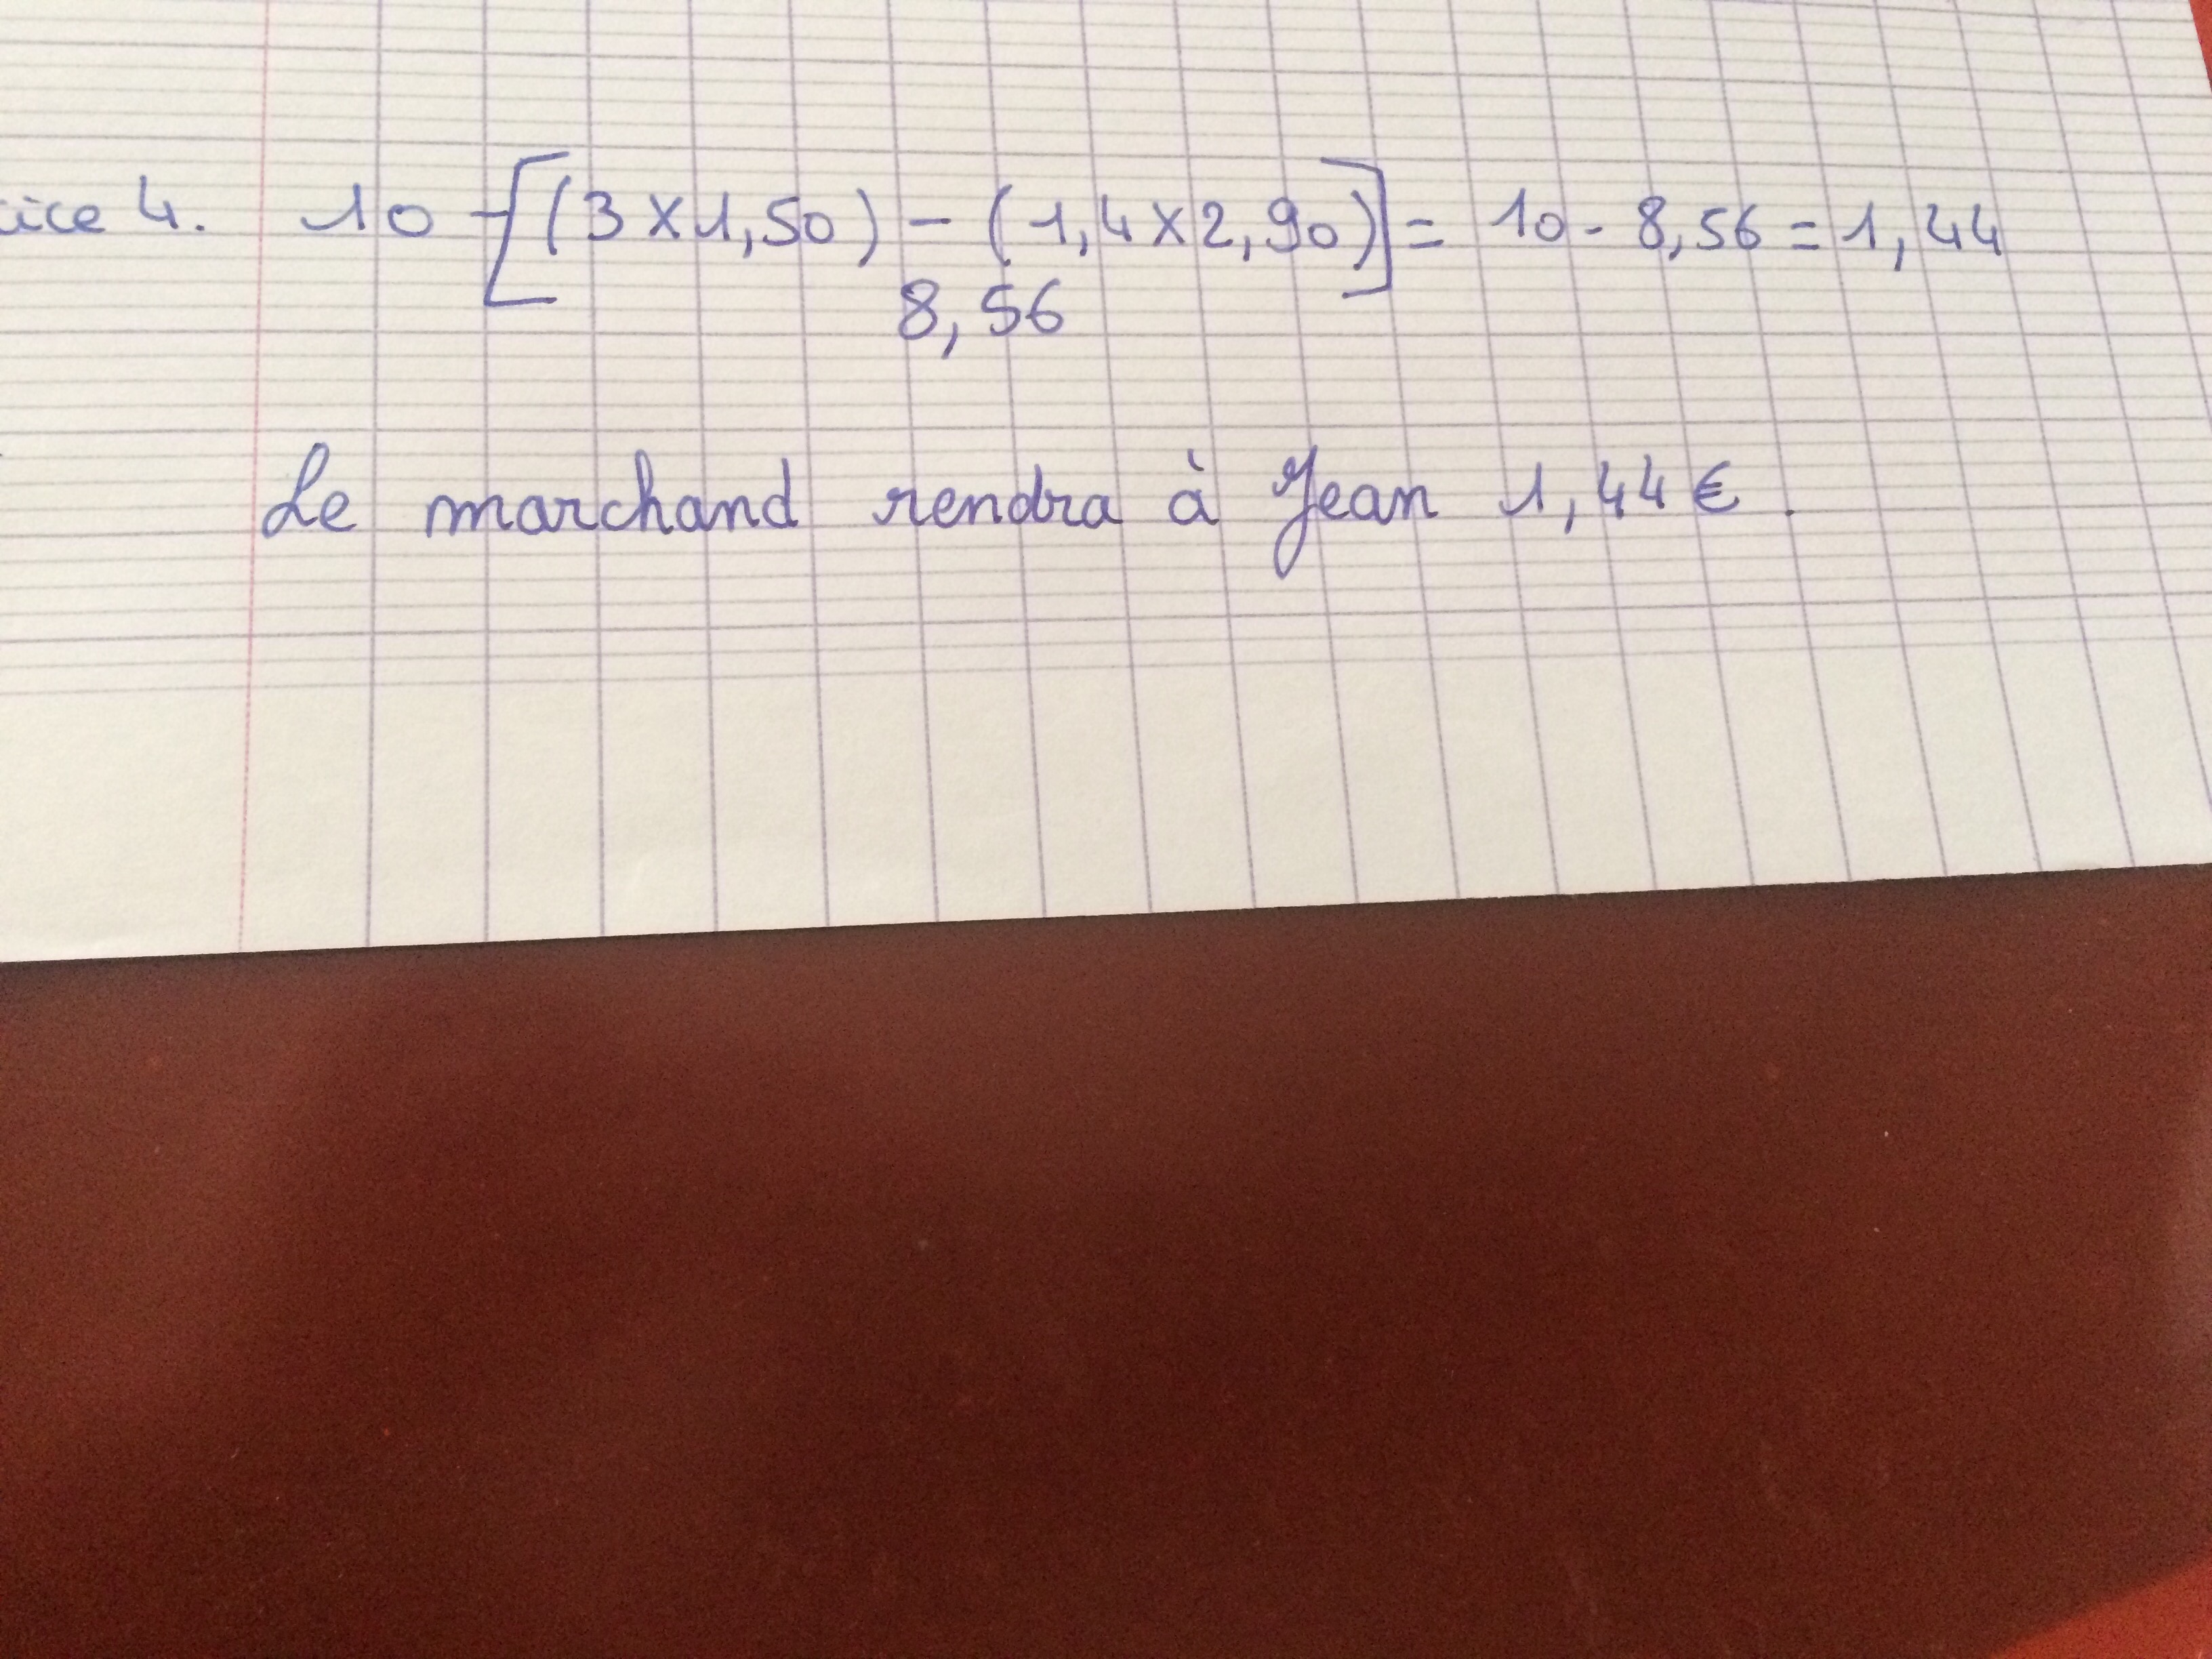 ice 4. 10 - [(3 x 1,50) - (1,4 x 2,90)] = 10 - 8,56 = 1,44
8,56
Le marchand rendra à Jean 1,44 €.